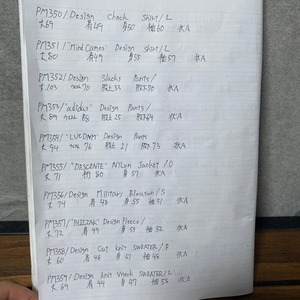 PM350/Design Check Shirt/L
丈69 肩49 身50 袖60 状A
PM351/"Mind Comes" Design shirt/L
丈80 肩49 身55 袖57 状A
PM352/Design Slacks Pants/
丈103 ウエスト70 股上33 股下70 状A
PM353/"adidas" Design Pants/
丈89 ウエスト88 股上25 股下64 状A
PM354/ Design Pants
丈94 ウエスト76 股上21 股下73 状A
PM355/"DESCENTE" NYLON Jacket/O
丈71 裄80 身57 状A
PM356/Design Military Blouson/S
丈74 肩48 身55 袖51 状A
PM357/ Design Fleece/
丈72 肩49 身57 袖52 状A
PM358/Design Cat knit SWEATER/F
丈60 肩48 身51 袖56 状A
PM359/Design knit Vneck SWEATER/L
丈69 肩44 身47 袖56 状A